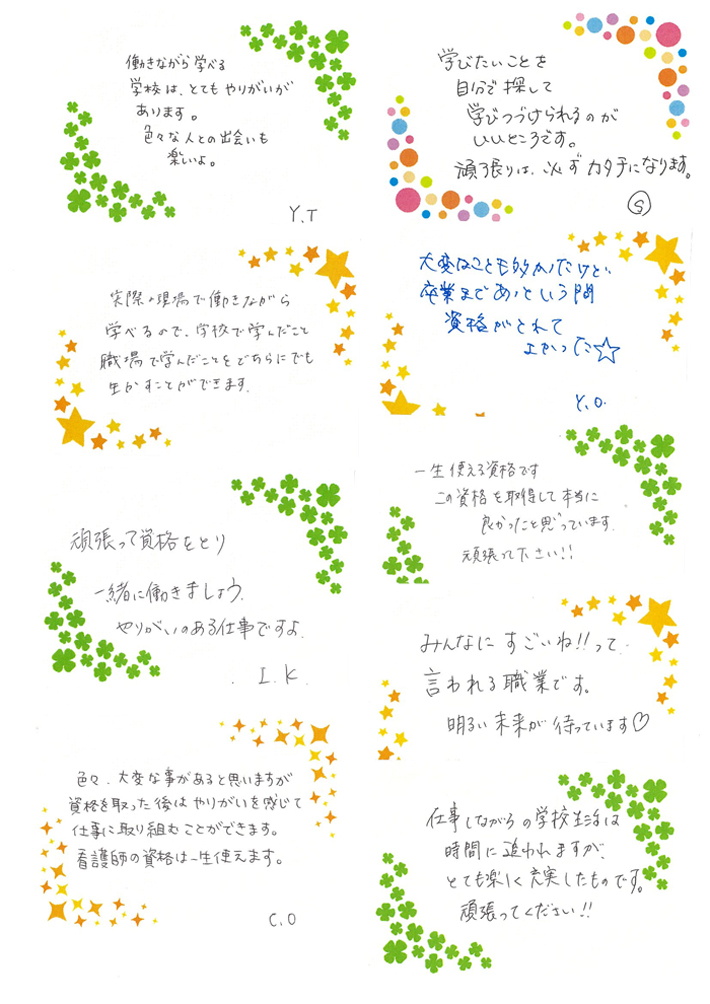 働きながら学べる
学校は、とてもやりがいが
あります。
色々な人との出会いも
楽しいよ。
Y.T
学びたいことを
自分で探して
学びつづけられるのが
いいところです。
頑張りは、必ずカタチになります。
S
実際の現場で働きながら
学べるので、学校で学んだこと
職場で学んだことをどちらにでも
生かすことができます。
大変なことも多かったけど、
卒業まであっという間
資格がとれて
よかった☆
Y.O.
一生使える資格です
この資格を取得して本当に
良かったと思っています。
頑張って下さい!!
頑張って資格をとり
一緒に働きましょう。
やりがいのある仕事ですよ
I.K
みんなに すごいね!!って
言われる職業です。
明るい未来が待っています♡
色々、大変な事があると思いますが
資格を取った後はやりがいを感じて
仕事に取り組むことができます。
看護師の資格は一生使えます。
C.O
仕事しながらの学校生活は
時間に追われますが、
とても楽しく充実したものです。
頑張ってください!!